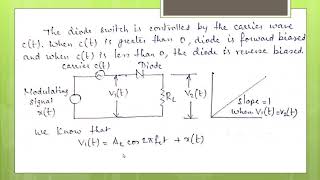 The diode switch is controlled by the carrier wave
c(t). When c(t) is greater than 0, diode is forward biased
and when c(t) is less than 0, the diode is reverse biased
carrier c(t)
Diode
Modulating
signal
x(t)
V₁(t)
R_L
V₂(t)
Slope = 1
When V₁(t)=V₂(t)
We know that
V₁(t) = A_c cos 2πf_c t + x(t)